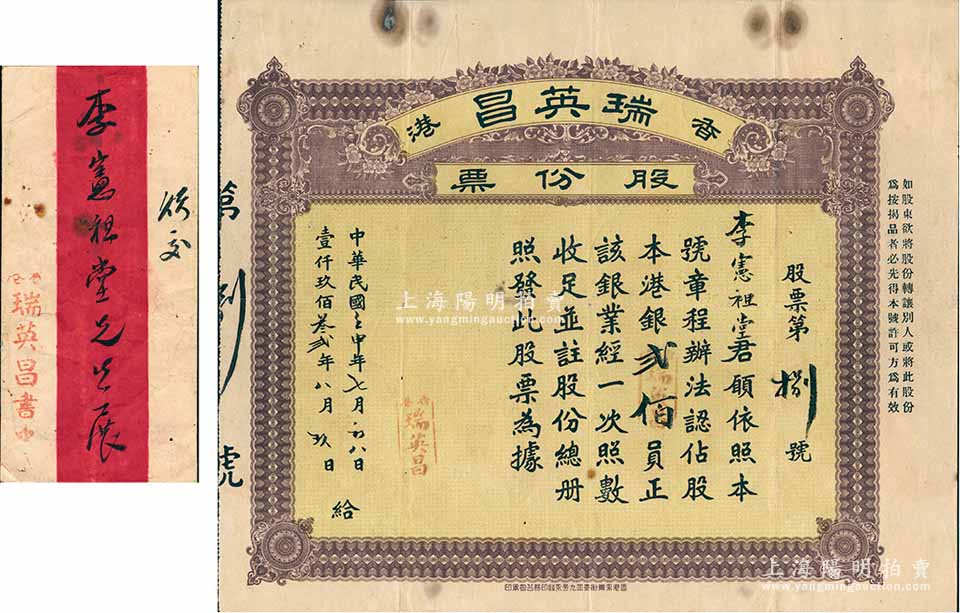 李憲祖堂先生展
瑞英昌書柬
香港瑞英昌
股份票
股票第捌號
李憲祖堂君願依照本
號章程辦法認佔股
本港銀弍佰員正
該銀業經一次照數
收足並註股份總册
照發此股票為據
中華民國壬申年七月初八日
壹仟玖佰叁弍年八月玖日
給
香港
瑞英昌
第捌號
如股東欲將股份轉讓別人或將此股份
為按揭品者必先得本號許可方為有效
上海陽明拍賣
www.yangmingauction.com
上海陽明拍賣
www.yangmingauction.com